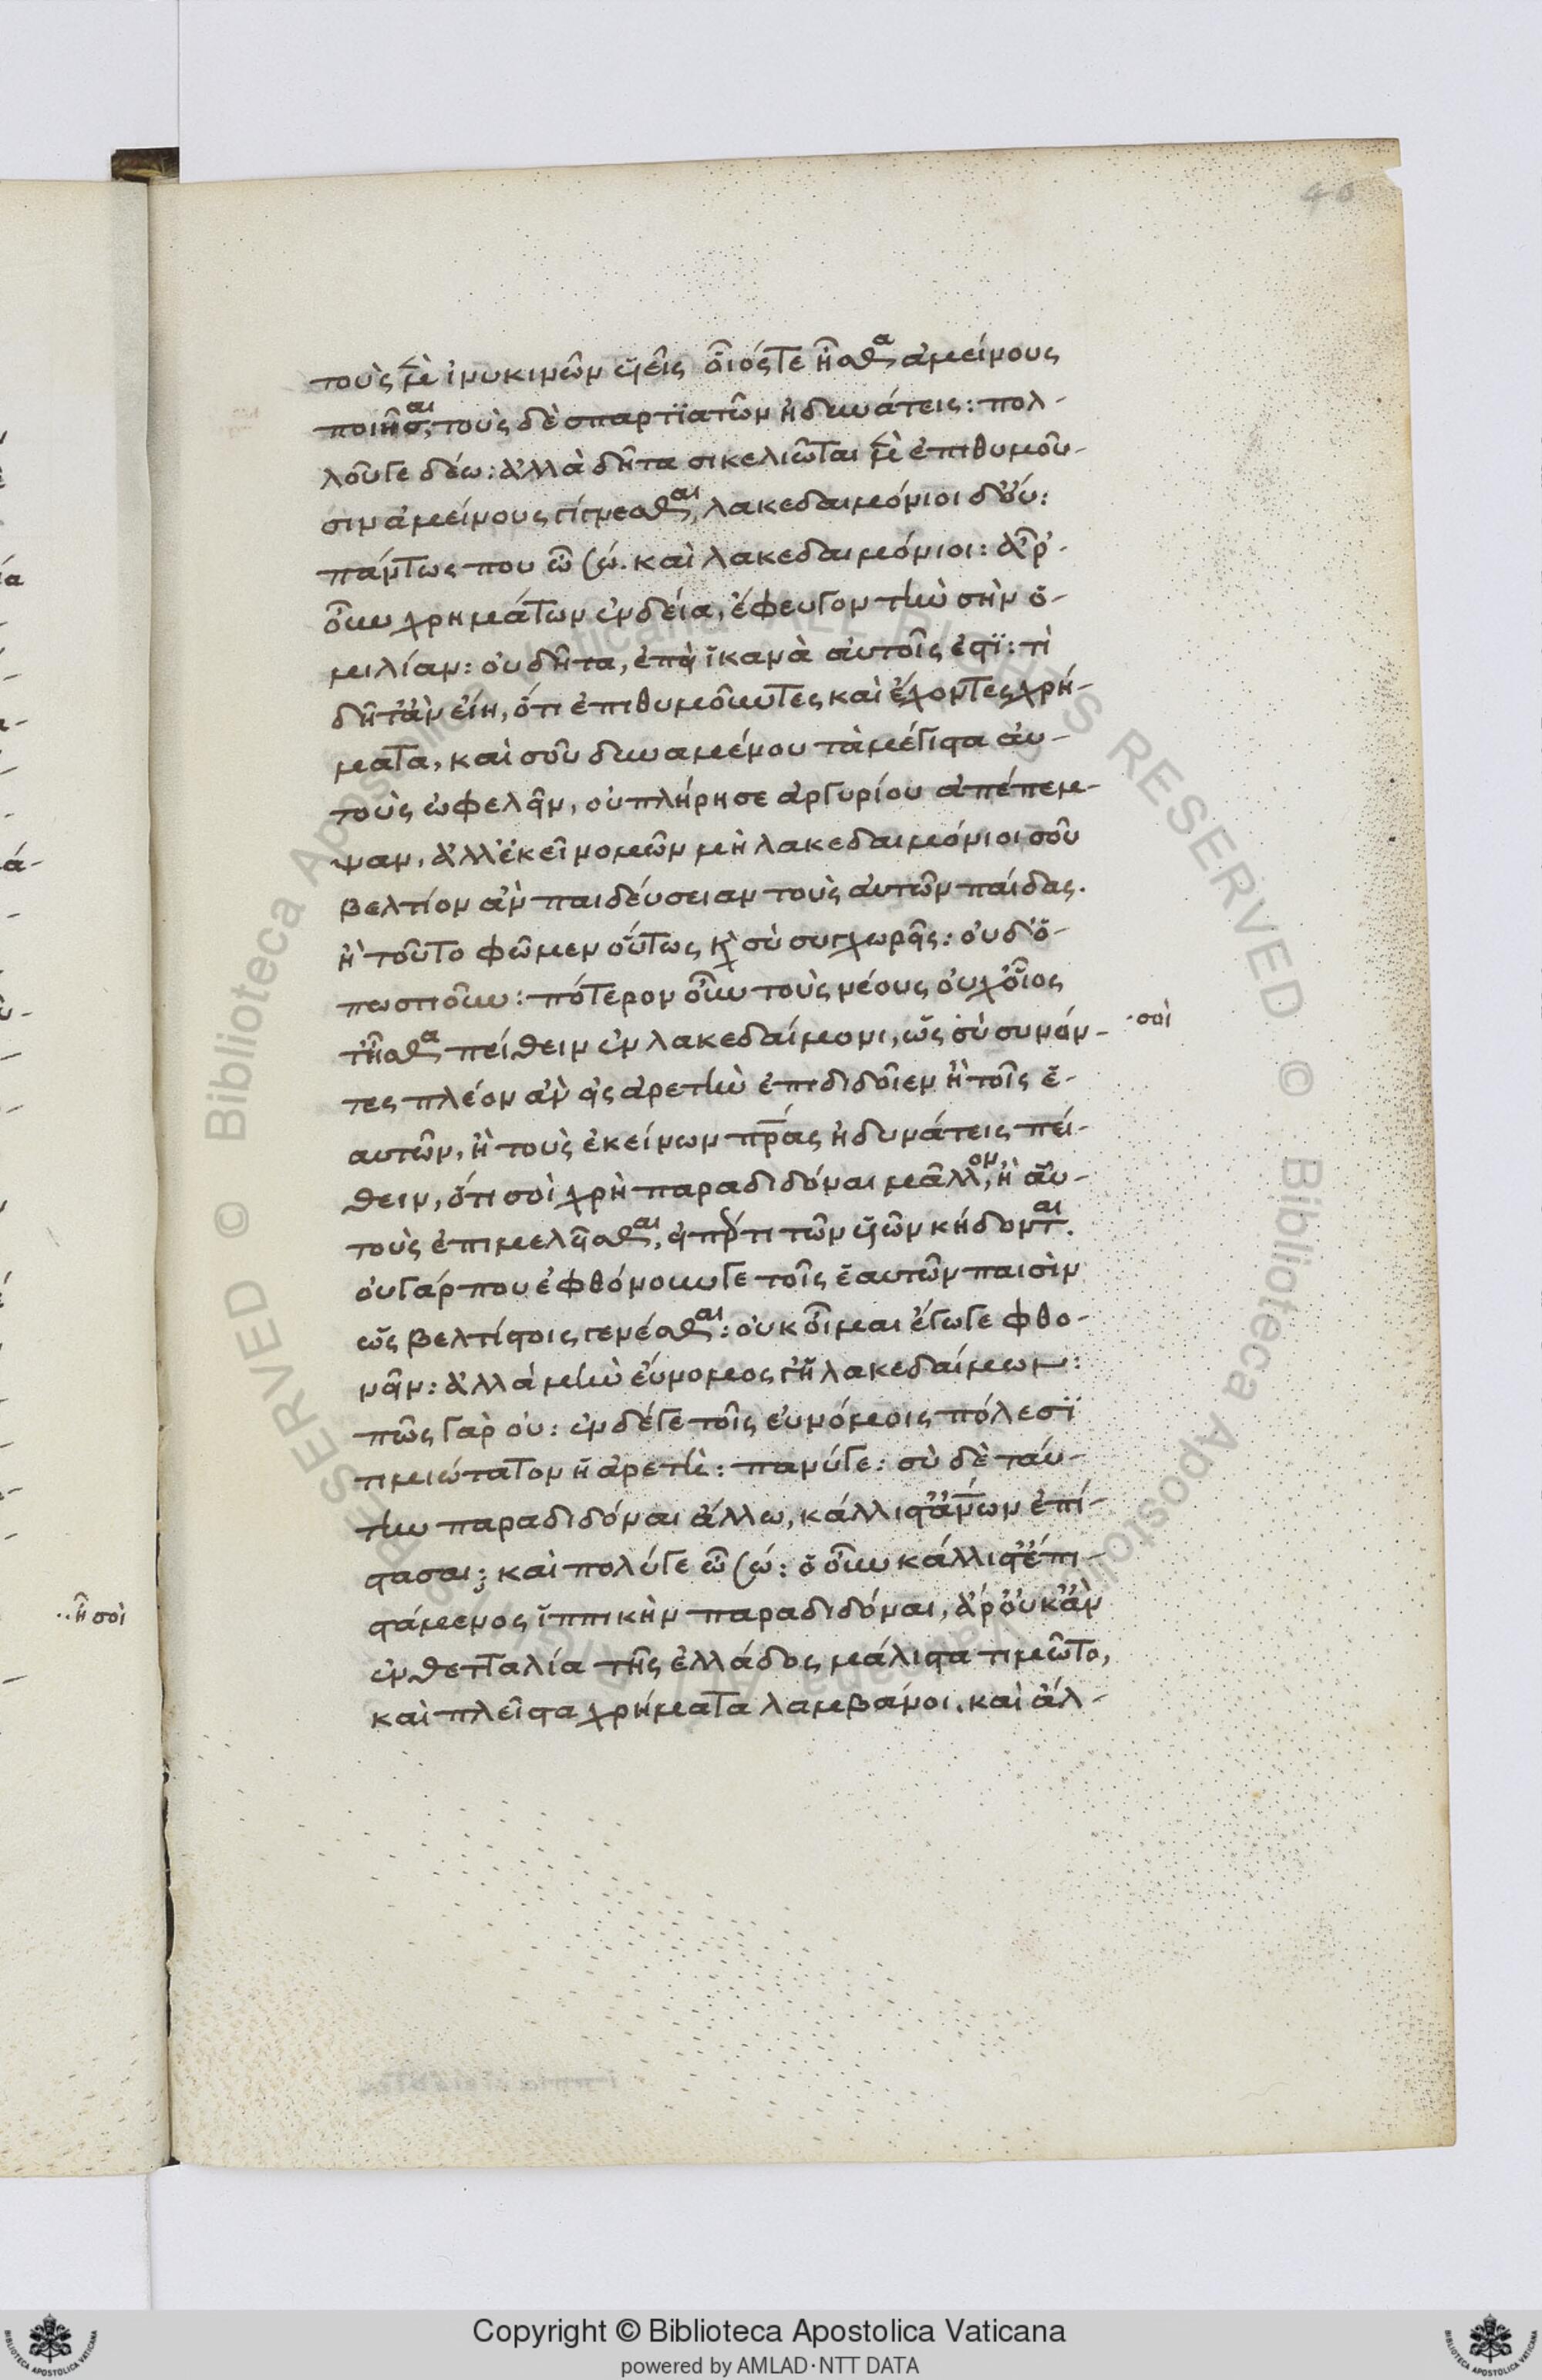 40
τοὺς μὲν ἰνυκινῶν ὑεῖς οἷόστε ἦσθα ἀμείνους
ποιῆσαι, τοὺς δὲ σπαρτϊατῶν ἠδυνάτεις: πολ-
λοῦγε δέω: ἀλλὰ δῆτα σικελιῶται μὲν ἐπιθυμοῦ-
σιν ἀμείνους γίγνεσθαι, λακεδαιμόνιοι δ' οὔ:
πάντως που ὦ σώ. καὶ λακεδαιμόνιοι: ἆρ'
οὖν χρημάτων ἐνδεία, ἔφευγον τὴν σὴν ὁ-
μιλίαν: οὐ δῆτα, ἐπεὶ ἱκανὰ αὐτοῖς ἐστϊ: τί
δῆτ' ἂν εἴη, ὅτι ἐπιθυμοῦντες καὶ ἔχοντες χρή-
ματα, καὶ σοῦ δυναμένου τὰ μέγιστα αὐ-
τοὺς ὠφελεῖν, οὐ πλήρη σε ἀργυρίου ἀπέπεμ-
ψαν, ἀλλ' ἐκεῖνο μῶν μὴ λακεδαιμόνιοι σοῦ
βελτίον ἂν παιδεύσειαν τοὺς αὑτῶν παίδας.
ἢ τοῦτο φῶμεν οὕτως καὶ σὺ συγχωρεῖς: οὐδ' ὁ-
πωστιοῦν: πότερον οὖν τοὺς νέους οὐχ οἷος
τ' ἦσθα πείθειν ἐν λακεδαίμονι, ὡς σὺ συνόν-
τες πλέον ἂν εἰς ἀρετὴν ἐπιδιδοῖεν ἢ τοῖς ἑ-
αυτῶν, ἢ τοὺς ἐκείνων πρας ἠδυνάτεις πεί-
θειν, ὅτι σοὶ χρὴ παραδιδόναι μᾶλλον, ἢ αὐ-
τοὺς ἐπιμελεῖσθαι, εἴπερ τι τῶν ὑῶν κήδονται.
οὐ γάρ που ἐφθόνουνγε τοῖς ἑαυτῶν παισὶν
ὡς βελτίστοις γενέσθαι: οὐκ οἶμαι ἔγωγε φθο-
νεῖν: ἀλλὰ μὴν εὔνομός γ' ἡ λακεδαίμων:
πῶς γὰρ οὐ: ἐν δέγε τοῖς εὐνόμοις πόλεσϊ
τιμιώτατον ἡ ἀρετὴ: πανύγε: σὺ δὲ ταύ-
την παραδιδόναι ἄλλω, κάλλιστ' ἀνων ἐπί-
στασαι; καὶ πολύγε ὦ σώ: ὁ οὖν κάλλιστ' ἐπι-
στάμενος ἱππικὴν παραδιδόναι, ἆρ' οὐκ ἂν
ἐν θετταλία τῆς ἑλλάδος μάλιστα τιμῶτο,
καὶ πλεῖστα χρήματα λαμβάνοι. καὶ ἄλ-
·σοὶ
··ἢ σοὶ
Copyright © Biblioteca Apostolica Vaticana
powered by AMLAD·NTT DATA